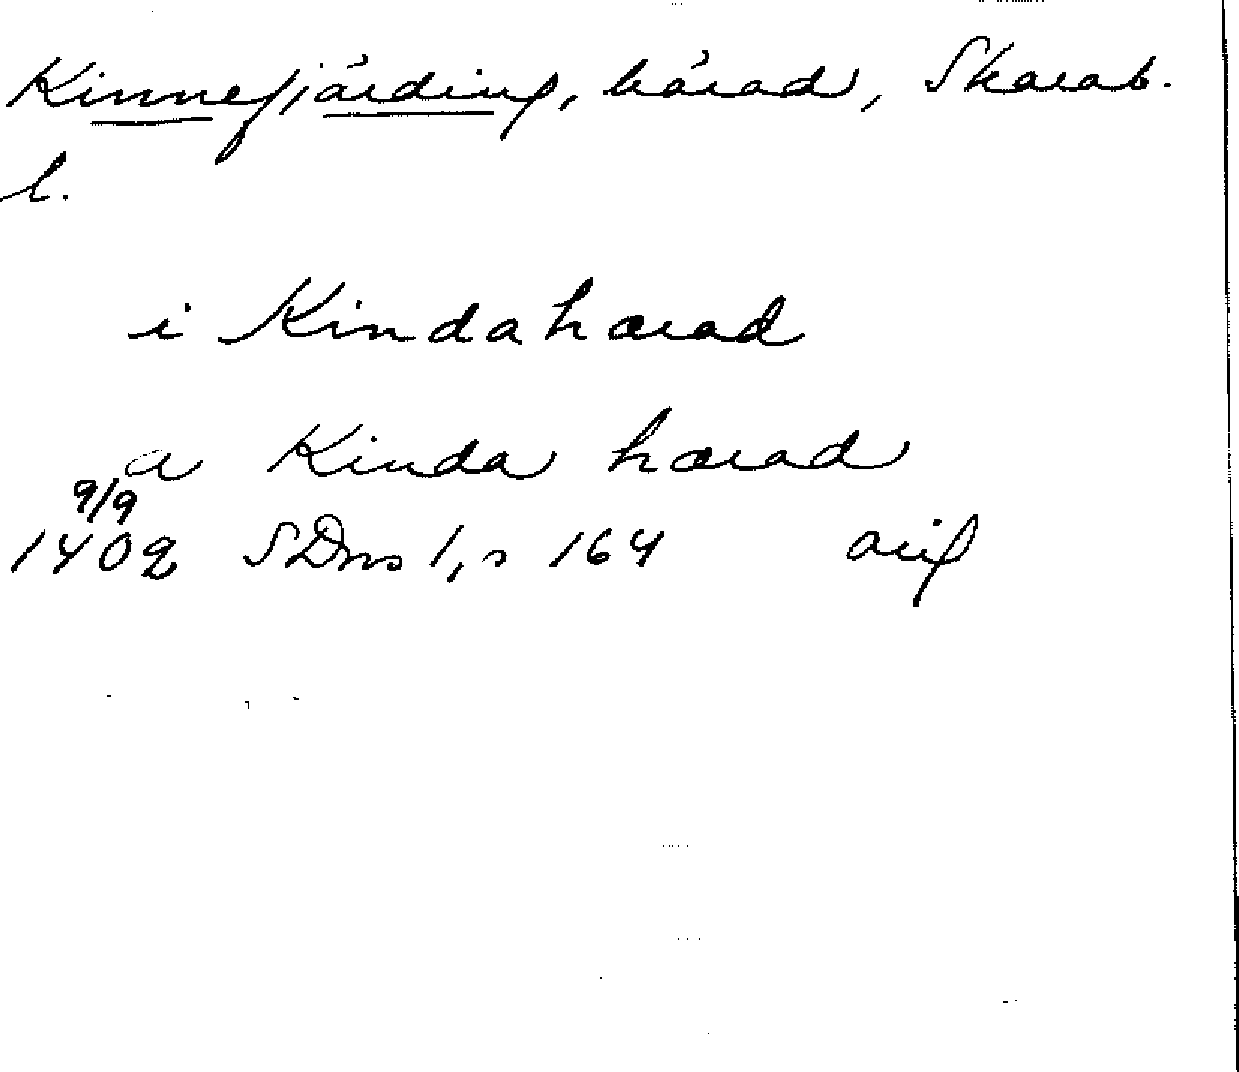 Kinnefjärding, härad, Skarab.
l.
i Kindahærad
a Kinda hærad
9/9
1402 SDns 1, s 164 orig